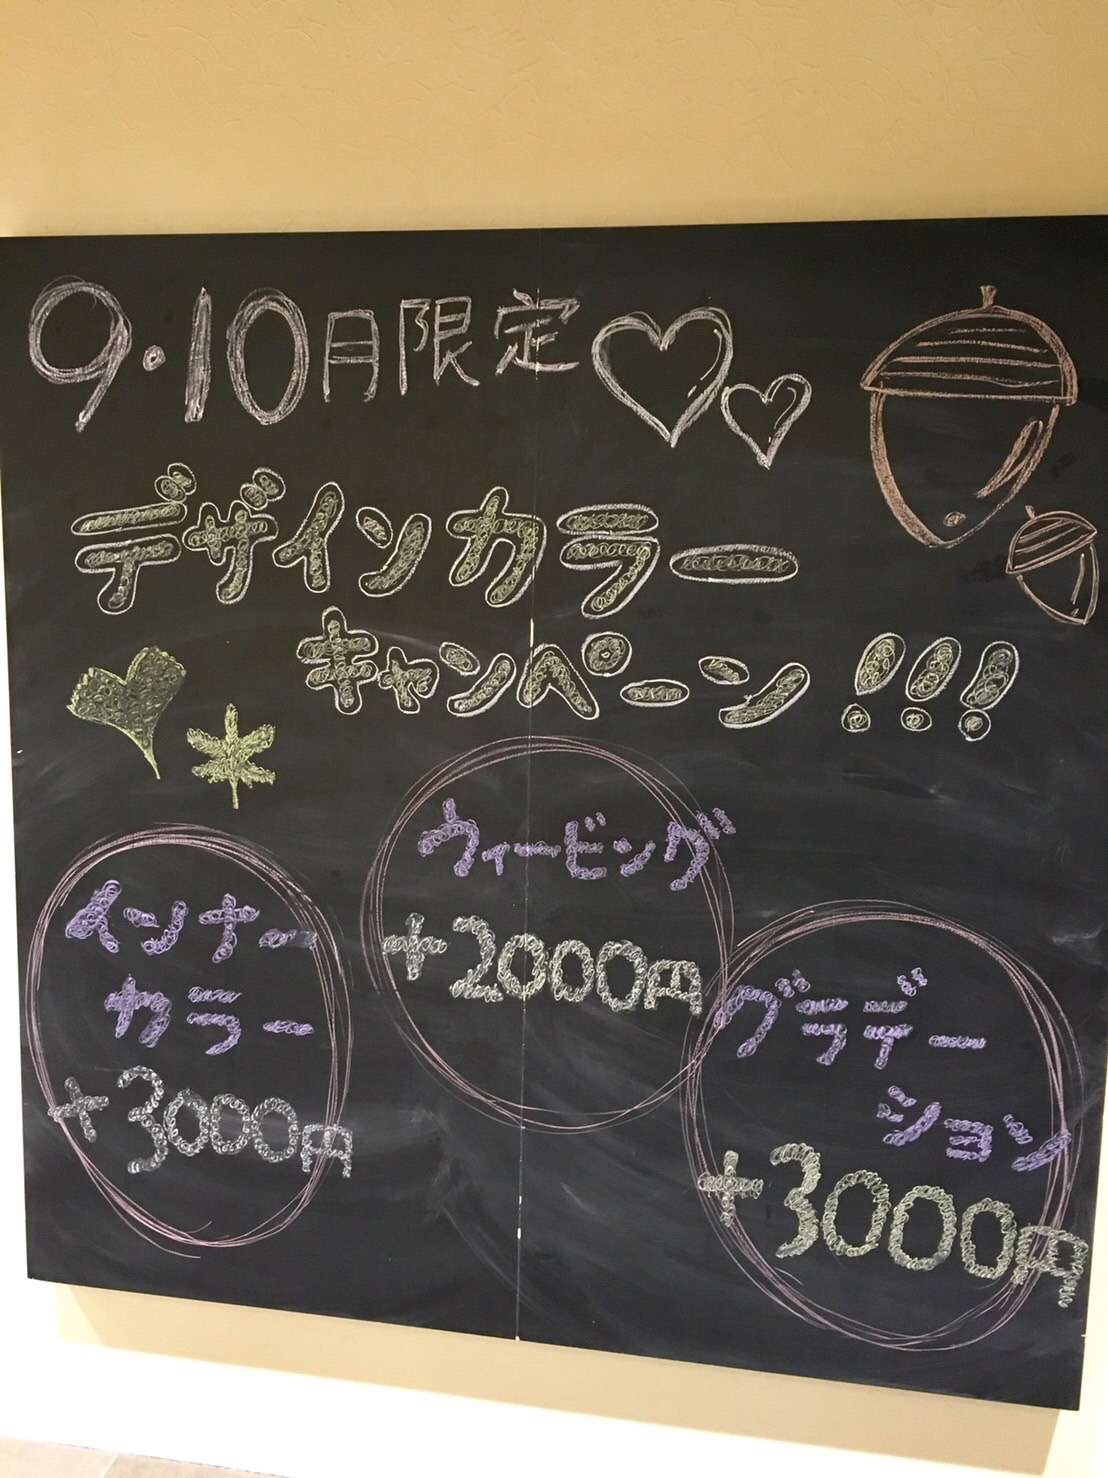 9・10月限定
デザインカラー
キャンペーン!!!
インナー
カラー
+3000円
ウィービング
+2000円
グラデー
ション
+3000円